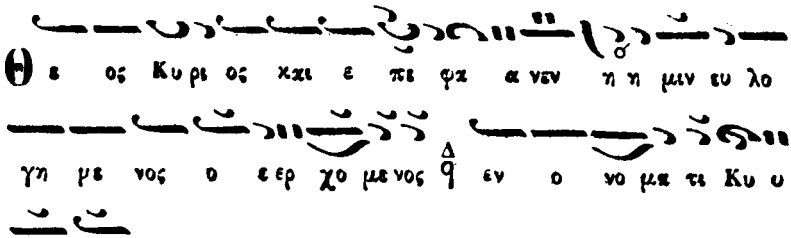 Θ ε ος Κυ ρι ος και ε πε φα α νεν η η μιν ευ λο
γη με νος ο ε ερ χο με νος Δ q εν ο νο μα τι Κυ υ